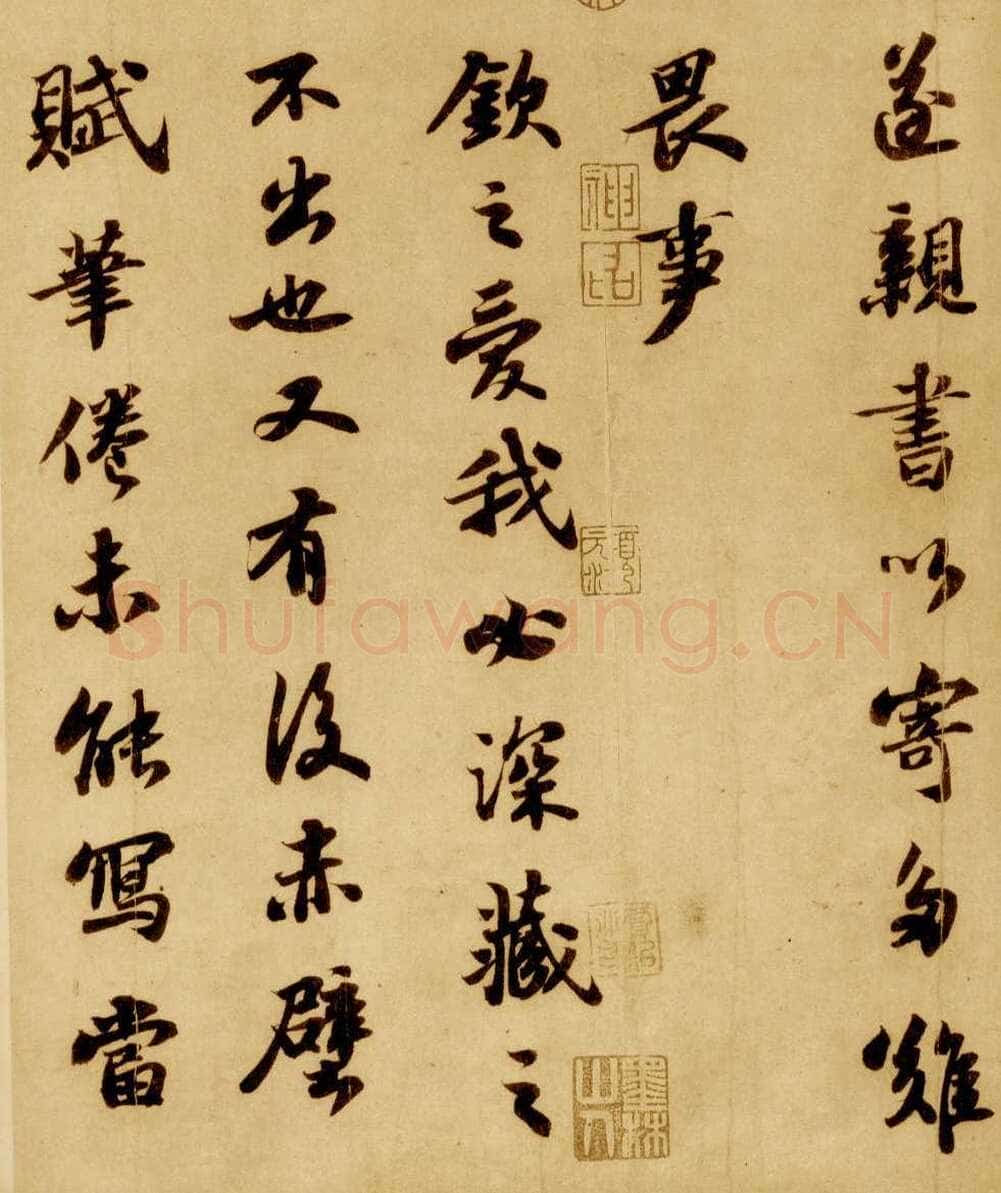 遂親書以寄多難
畏事
欽之愛我必深藏之
不出也又有後赤壁
賦筆倦未能寫當
神品
墨林山人
Shufawang.CN